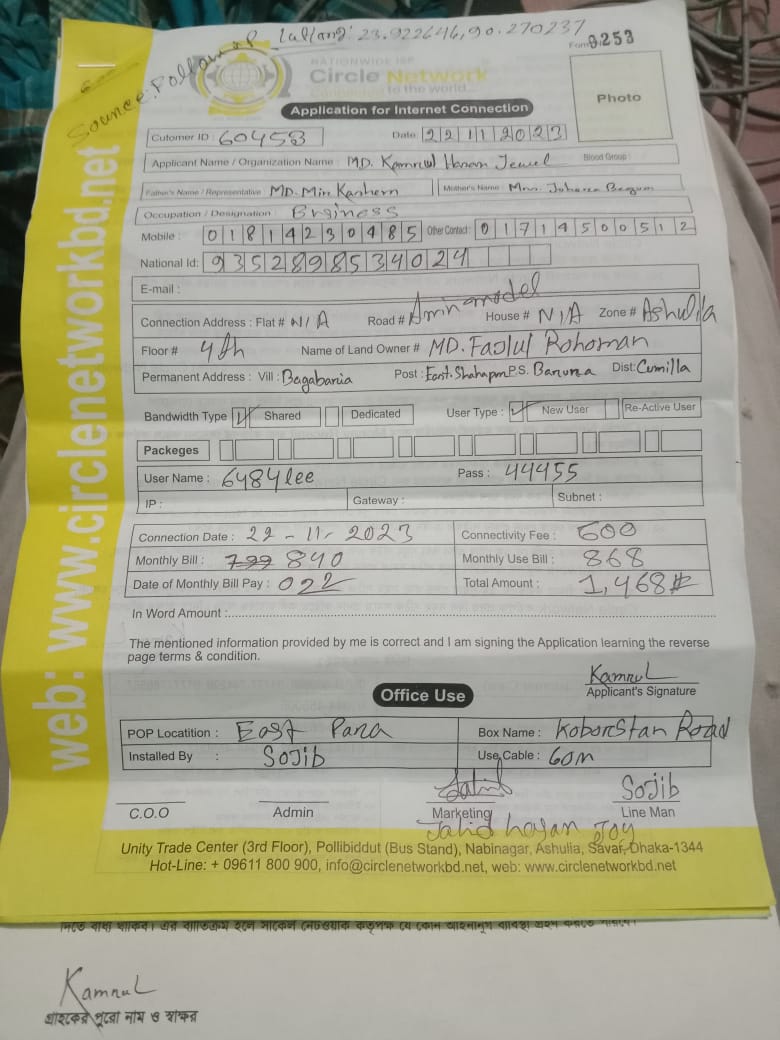 Source: Follow up Lat/Long: 23.922646,90.270237
Form 9253
NATIONWIDE ISP
Circle Network
to the world...
Photo
Application for Internet Connection
Cutomer ID : 60453 Date: 22112023
Applicant Name / Organization Name : MD. Kamrul Hasan Jewel Blood Group :
Father's Name / Representative : MD. Mir Kashem Mother's Name : Mrs. Johora Begum
Occupation / Designation : Business
Mobile : 01814230485 Other Contact : 01714500512
National Id: 9352898534024
E-mail :
Connection Address : Flat # N/A Road # Amin model House # N/A Zone # Ashulia
Floor # 4th Name of Land Owner # MD. Fajlul Rohoman
Permanent Address : Vill : Bagabaria Post : East. Shahapur P.S. Barura Dist: Cumilla
Bandwidth Type Shared Dedicated User Type : New User Re-Active User
Packeges
User Name : 6484lee Pass : 44455
IP : Gateway : Subnet :
Connection Date : 22-11-2023 Connectivity Fee : 600
Monthly Bill : 799 840 Monthly Use Bill : 868
Date of Monthly Bill Pay : 022 Total Amount : 1,468#
In Word Amount :
The mentioned information provided by me is correct and I am signing the Application learning the reverse
page terms & condition.
Kamrul
Applicant's Signature
Office Use
POP Locatition : East Para Box Name : Koborstan Road
Installed By : Sojib Use Cable : 60m
Sojib
C.O.O Admin Marketing Line Man
Jahid hasan Joy
Unity Trade Center (3rd Floor), Pollibiddut (Bus Stand), Nabinagar, Ashulia, Savar, Dhaka-1344
Hot-Line: + 09611 800 900, info@circlenetworkbd.net, web: www.circlenetworkbd.net
web: www.circlenetworkbd.net
Kamrul
গ্রাহকের পুরো নাম ও স্বাক্ষর